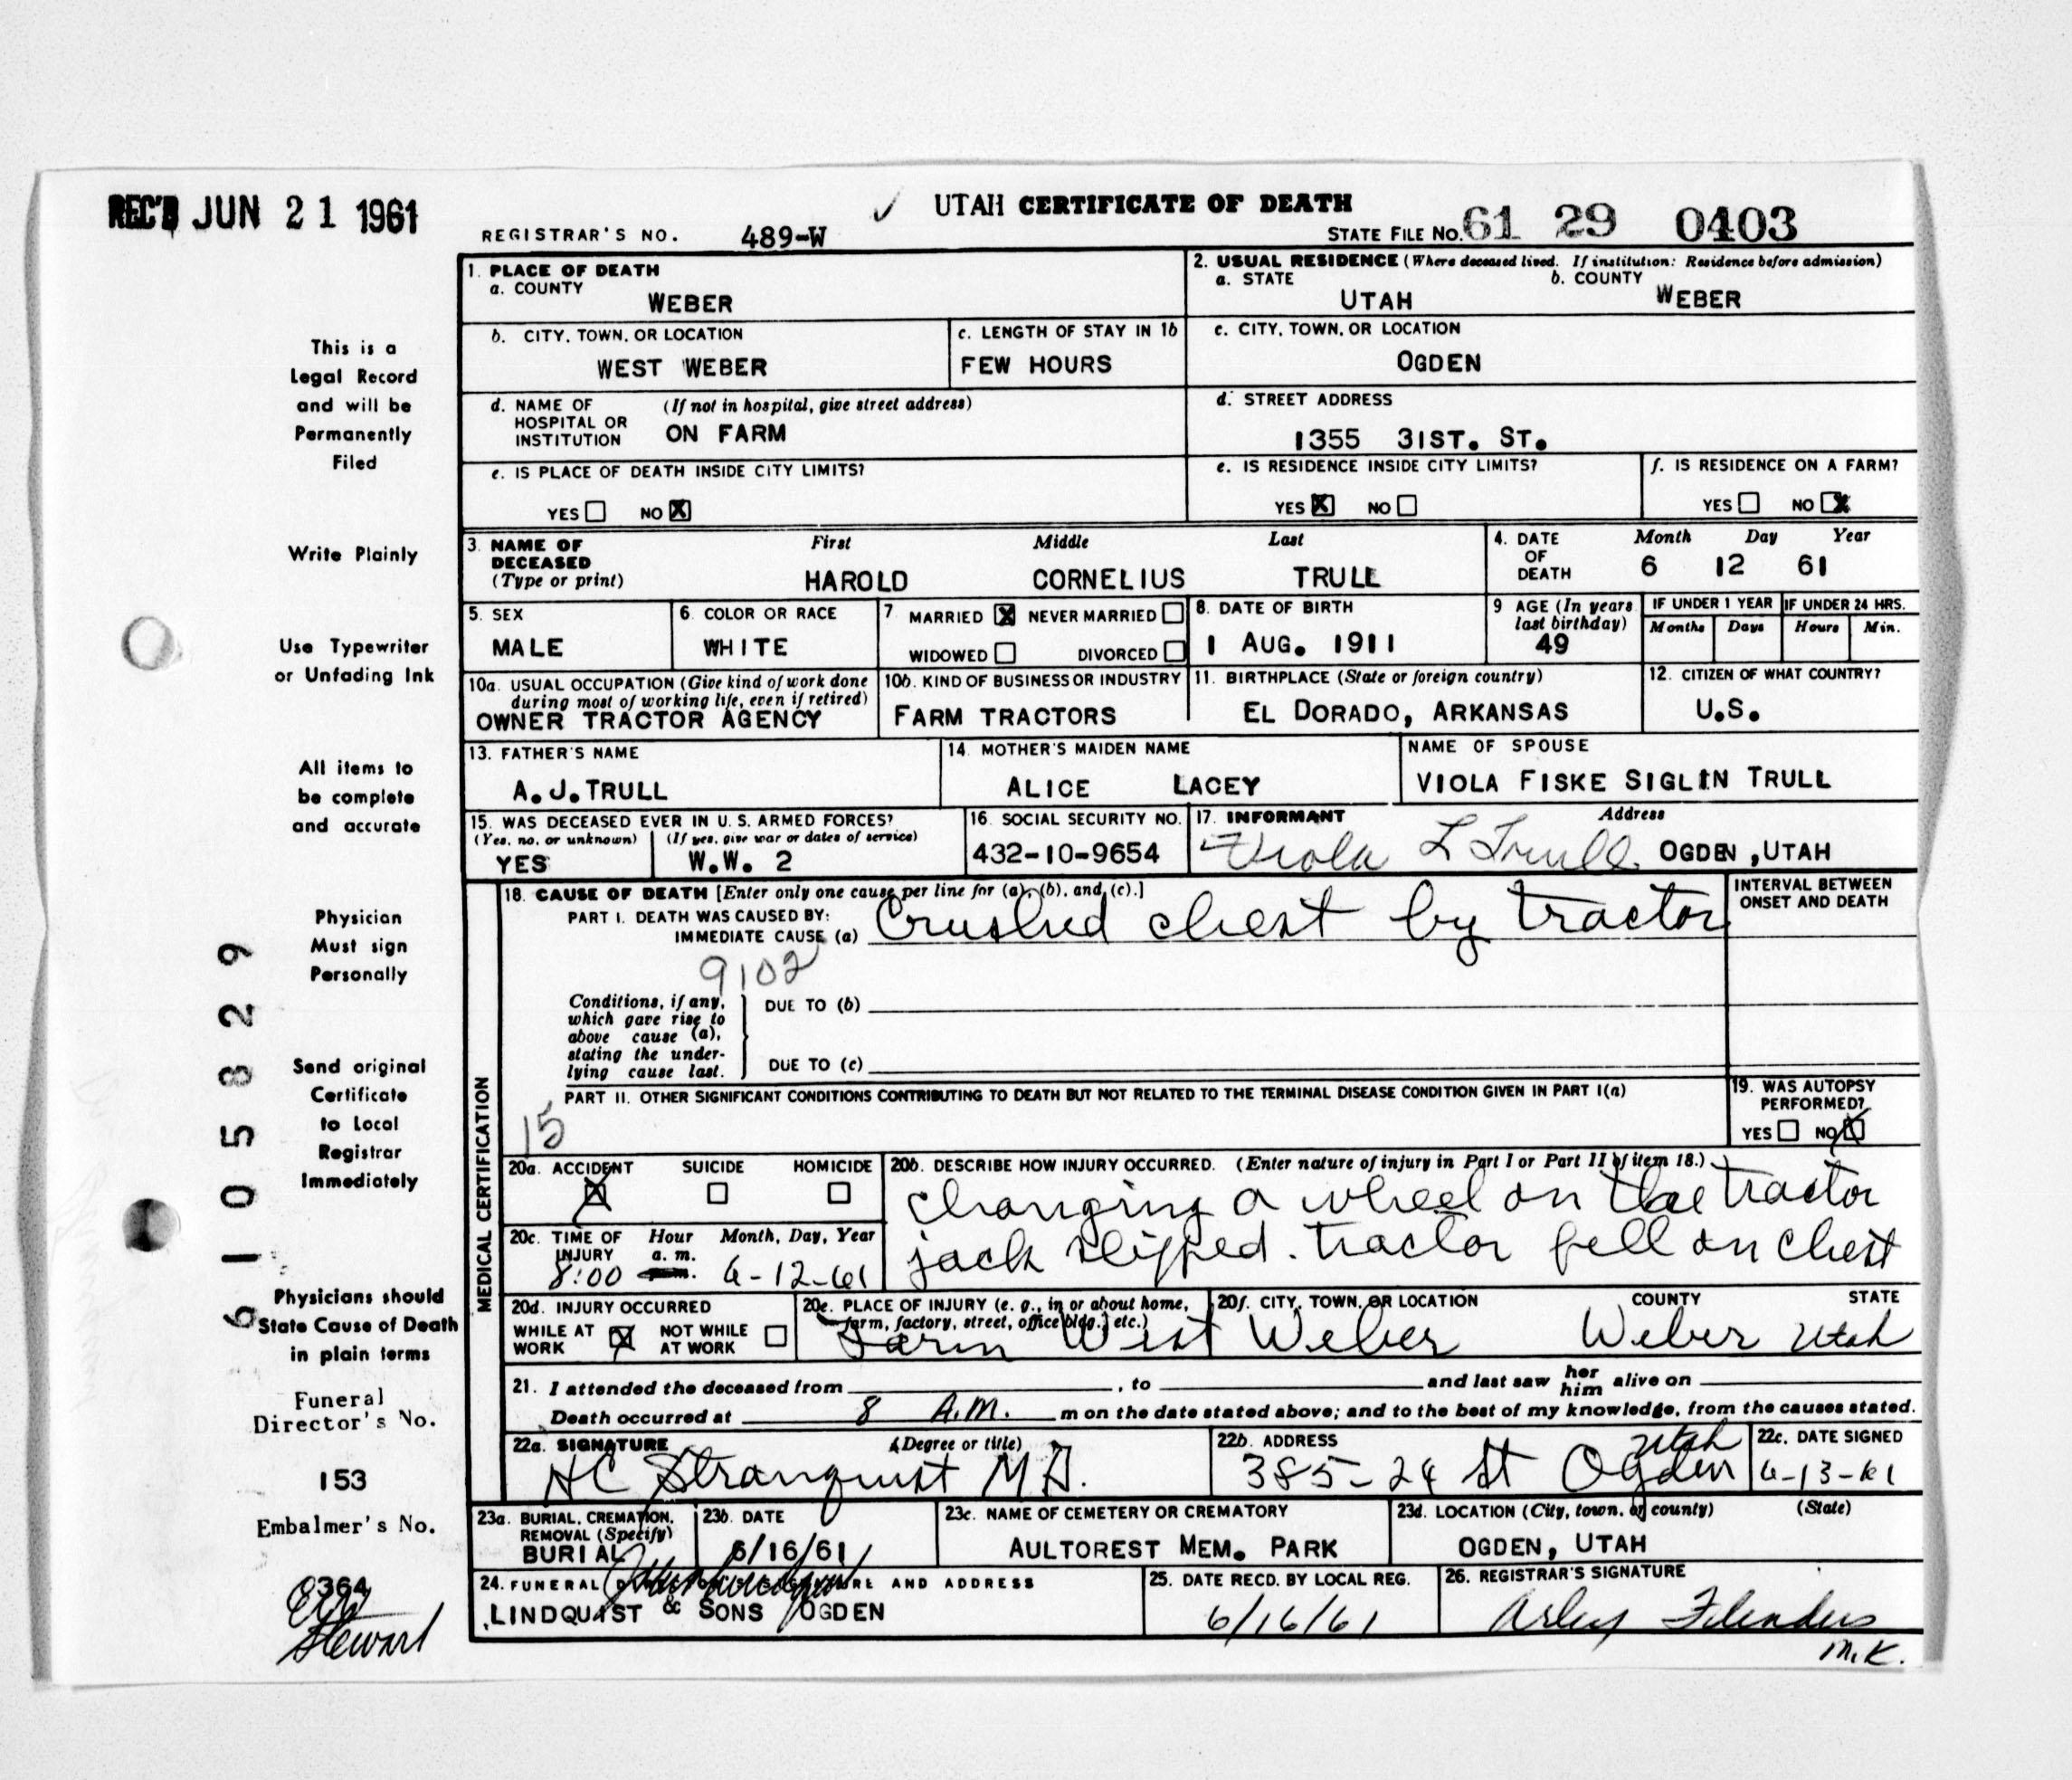 REC'D JUN 21 1961
UTAH CERTIFICATE OF DEATH
REGISTRAR'S NO. 489-W
STATE FILE No. 61 29 0403
1. PLACE OF DEATH
a. COUNTY
WEBER
2. USUAL RESIDENCE (Where deceased lived. If institution: Residence before admission)
a. STATE b. COUNTY
UTAH WEBER
b. CITY, TOWN, OR LOCATION
WEST WEBER
c. LENGTH OF STAY IN 1b
FEW HOURS
c. CITY, TOWN, OR LOCATION
OGDEN
d. NAME OF HOSPITAL OR INSTITUTION (If not in hospital, give street address)
ON FARM
d. STREET ADDRESS
1355 31ST. ST.
e. IS PLACE OF DEATH INSIDE CITY LIMITS?
YES NO X
e. IS RESIDENCE INSIDE CITY LIMITS?
YES X NO
f. IS RESIDENCE ON A FARM?
YES NO X
3. NAME OF DECEASED (Type or print)
First Middle Last
HAROLD CORNELIUS TRULL
4. DATE OF DEATH
Month Day Year
6 12 61
5. SEX
MALE
6. COLOR OR RACE
WHITE
7. MARRIED X NEVER MARRIED
WIDOWED DIVORCED
8. DATE OF BIRTH
1 AUG. 1911
9 AGE (In years last birthday)
49
IF UNDER 1 YEAR IF UNDER 24 HRS.
Months Days Hours Min.
10a. USUAL OCCUPATION (Give kind of work done during most of working life, even if retired)
OWNER TRACTOR AGENCY
10b. KIND OF BUSINESS OR INDUSTRY
FARM TRACTORS
11. BIRTHPLACE (State or foreign country)
EL DORADO, ARKANSAS
12. CITIZEN OF WHAT COUNTRY?
U.S.
13. FATHER'S NAME
A. J. TRULL
14. MOTHER'S MAIDEN NAME
ALICE LACEY
NAME OF SPOUSE
VIOLA FISKE SIGLIN TRULL
15. WAS DECEASED EVER IN U. S. ARMED FORCES?
(Yes, no, or unknown) (If yes, give war or dates of service)
YES W.W. 2
16. SOCIAL SECURITY NO.
432-10-9654
17. INFORMANT Address
Viola L Trull OGDEN, UTAH
MEDICAL CERTIFICATION
18. CAUSE OF DEATH [Enter only one cause per line for (a), (b), and (c).]
PART I. DEATH WAS CAUSED BY:
IMMEDIATE CAUSE (a) Crushed chest by tractor
INTERVAL BETWEEN ONSET AND DEATH
9102
Conditions, if any, which gave rise to above cause (a), stating the underlying cause last.
DUE TO (b)
DUE TO (c)
PART II. OTHER SIGNIFICANT CONDITIONS CONTRIBUTING TO DEATH BUT NOT RELATED TO THE TERMINAL DISEASE CONDITION GIVEN IN PART I(a)
15
19. WAS AUTOPSY PERFORMED?
YES NO X
20a. ACCIDENT SUICIDE HOMICIDE
X
20b. DESCRIBE HOW INJURY OCCURRED. (Enter nature of injury in Part I or Part II of item 18.)
changing a wheel on the tractor
jack slipped. tractor fell on chest
20c. TIME OF INJURY Hour a. m. Month, Day, Year
8:00 6-12-61
20d. INJURY OCCURRED
WHILE AT WORK X NOT WHILE AT WORK
20e. PLACE OF INJURY (e. g., in or about home, farm, factory, street, office bldg., etc.)
Farm
20f. CITY, TOWN, OR LOCATION COUNTY STATE
West Weber Weber Utah
21. I attended the deceased from , to and last saw her him alive on
Death occurred at 8 A.M. m on the date stated above; and to the best of my knowledge, from the causes stated.
22a. SIGNATURE (Degree or title)
HC Stranquist M.D.
22b. ADDRESS
385-24 St Ogden Utah
22c. DATE SIGNED
6-13-61
23a. BURIAL, CREMATION, REMOVAL (Specify)
BURIAL
23b. DATE
6/16/61
23c. NAME OF CEMETERY OR CREMATORY
AULTOREST MEM. PARK
23d. LOCATION (City, town, or county) (State)
OGDEN, UTAH
24. FUNERAL AND ADDRESS
LINDQUIST & SONS OGDEN
25. DATE RECD. BY LOCAL REG.
6/16/61
26. REGISTRAR'S SIGNATURE
M.K.
This is a
Legal Record
and will be
Permanently
Filed
Write Plainly
Use Typewriter
or Unfading Ink
All items to
be complete
and accurate
Physician
Must sign
Personally
Send original
Certificate
to Local
Registrar
Immediately
Physicians should
State Cause of Death
in plain terms
Funeral
Director's No.
153
Embalmer's No.
364
Stewart
6105829